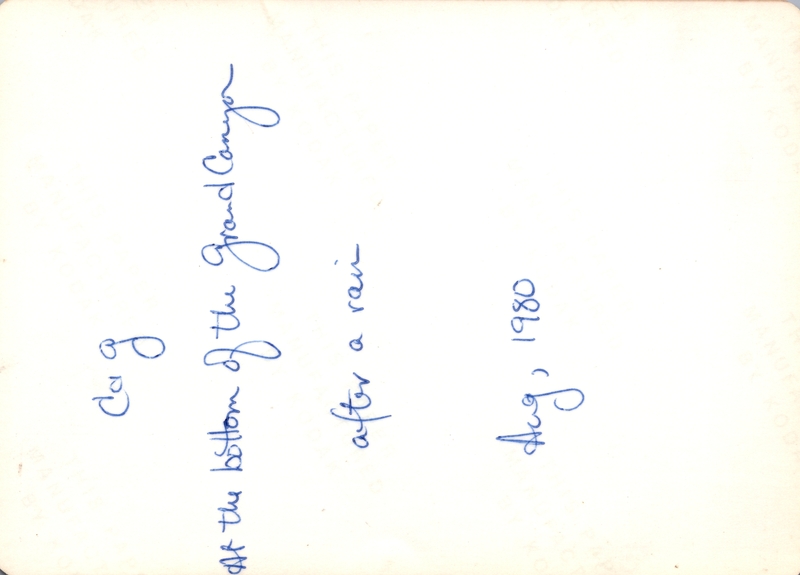 At the bottom of the Grand Canyon
after a rain
Aug, 1980